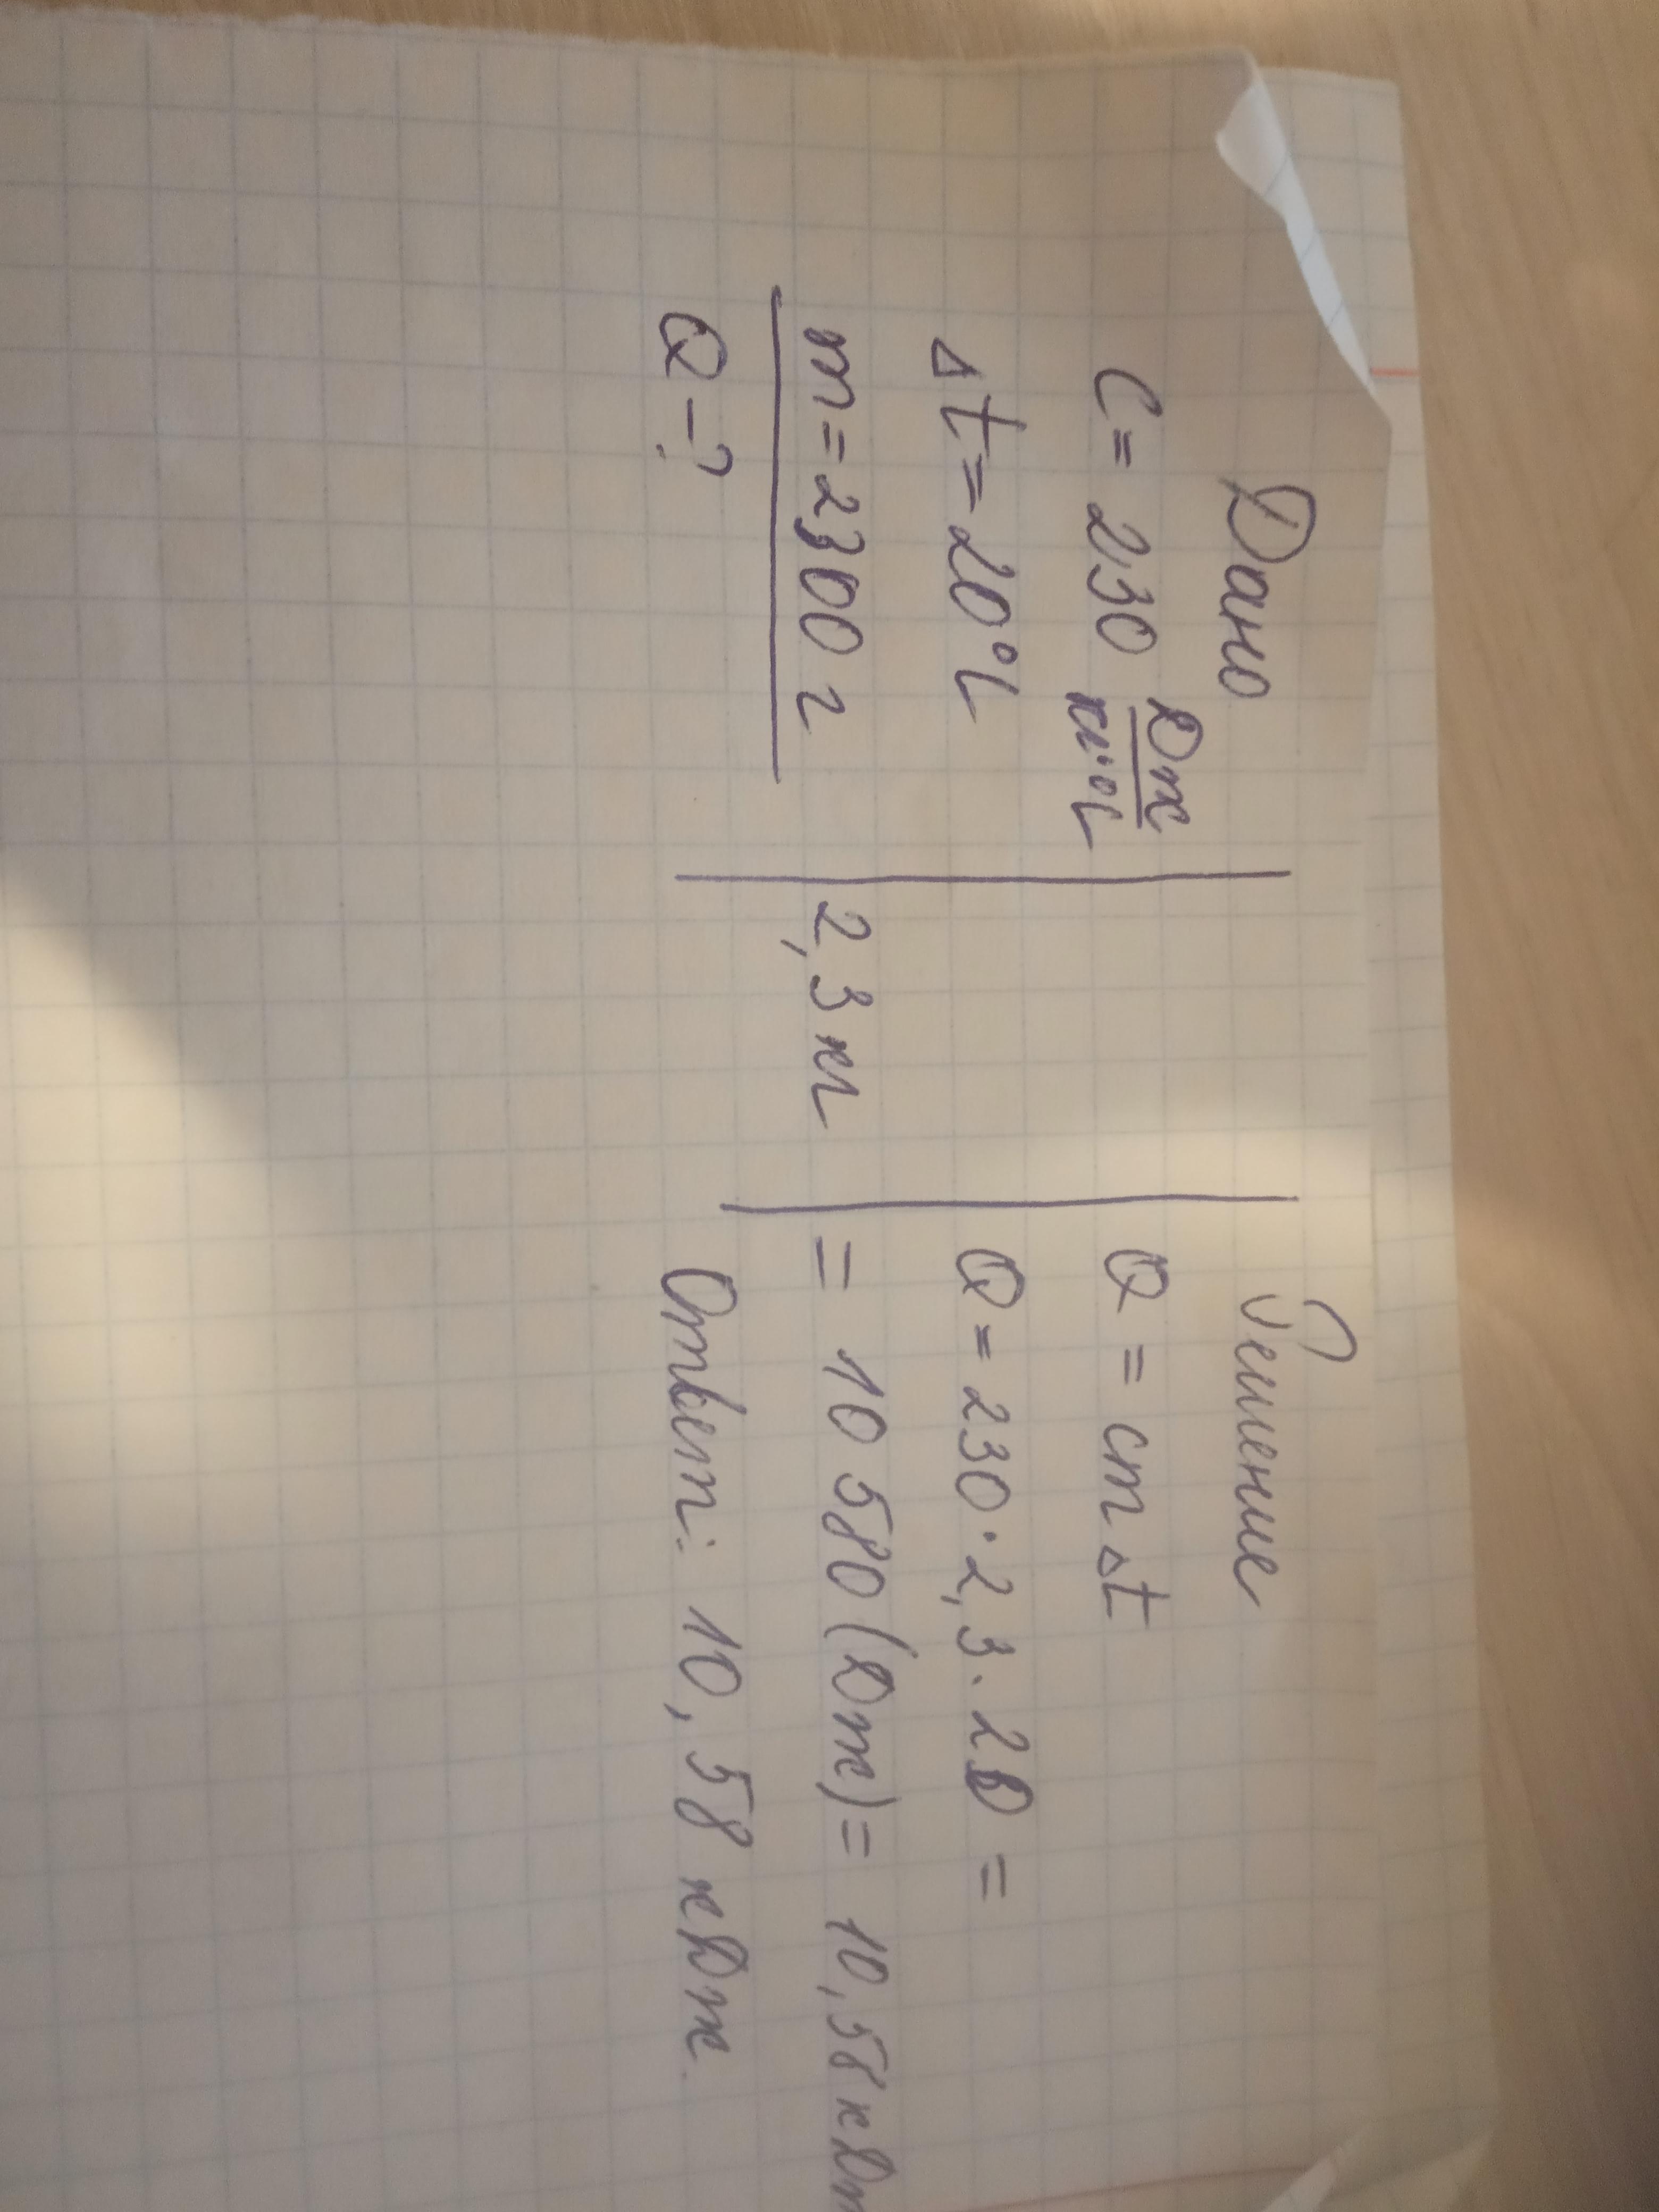 Дано
C = 230 Дж/кг·°C
Δt = 20°C
m = 2300 г
Q - ?
2,3 кг
Решение
Q = cmΔt
Q = 230 · 2,3 · 20 =
= 10 580 (Дж) = 10,58 кДж
Ответ: 10,58 кДж